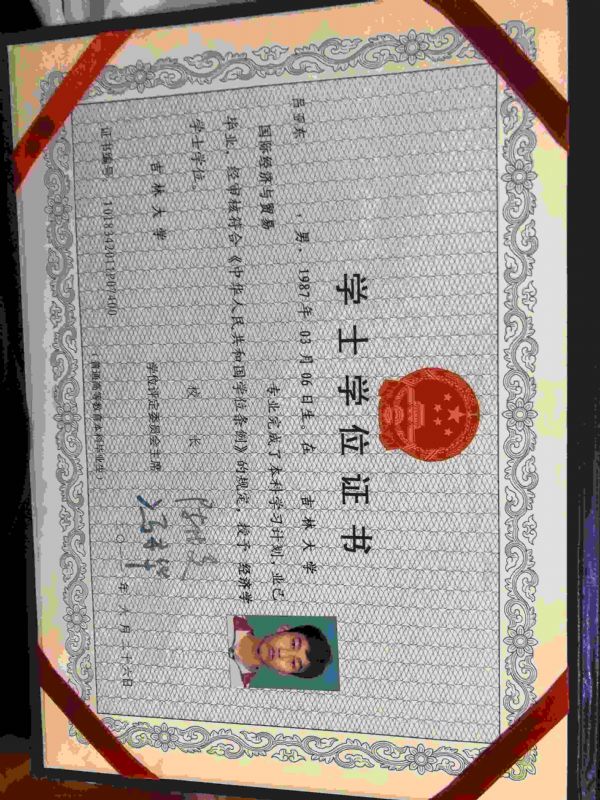 学士学位证书
吕亚东 ，男，1987年 03月 06日生。在 吉林大学
国际经济与贸易 专业完成了本科学习计划，业已
毕业，经审核符合《中华人民共和国学位条例》的规定，授予 经济学
学士学位。
吉林大学 校 长
学位评定委员会主席
证书编号 二〇一 年 六 月 二十 日
（普通高等教育本科毕业生）